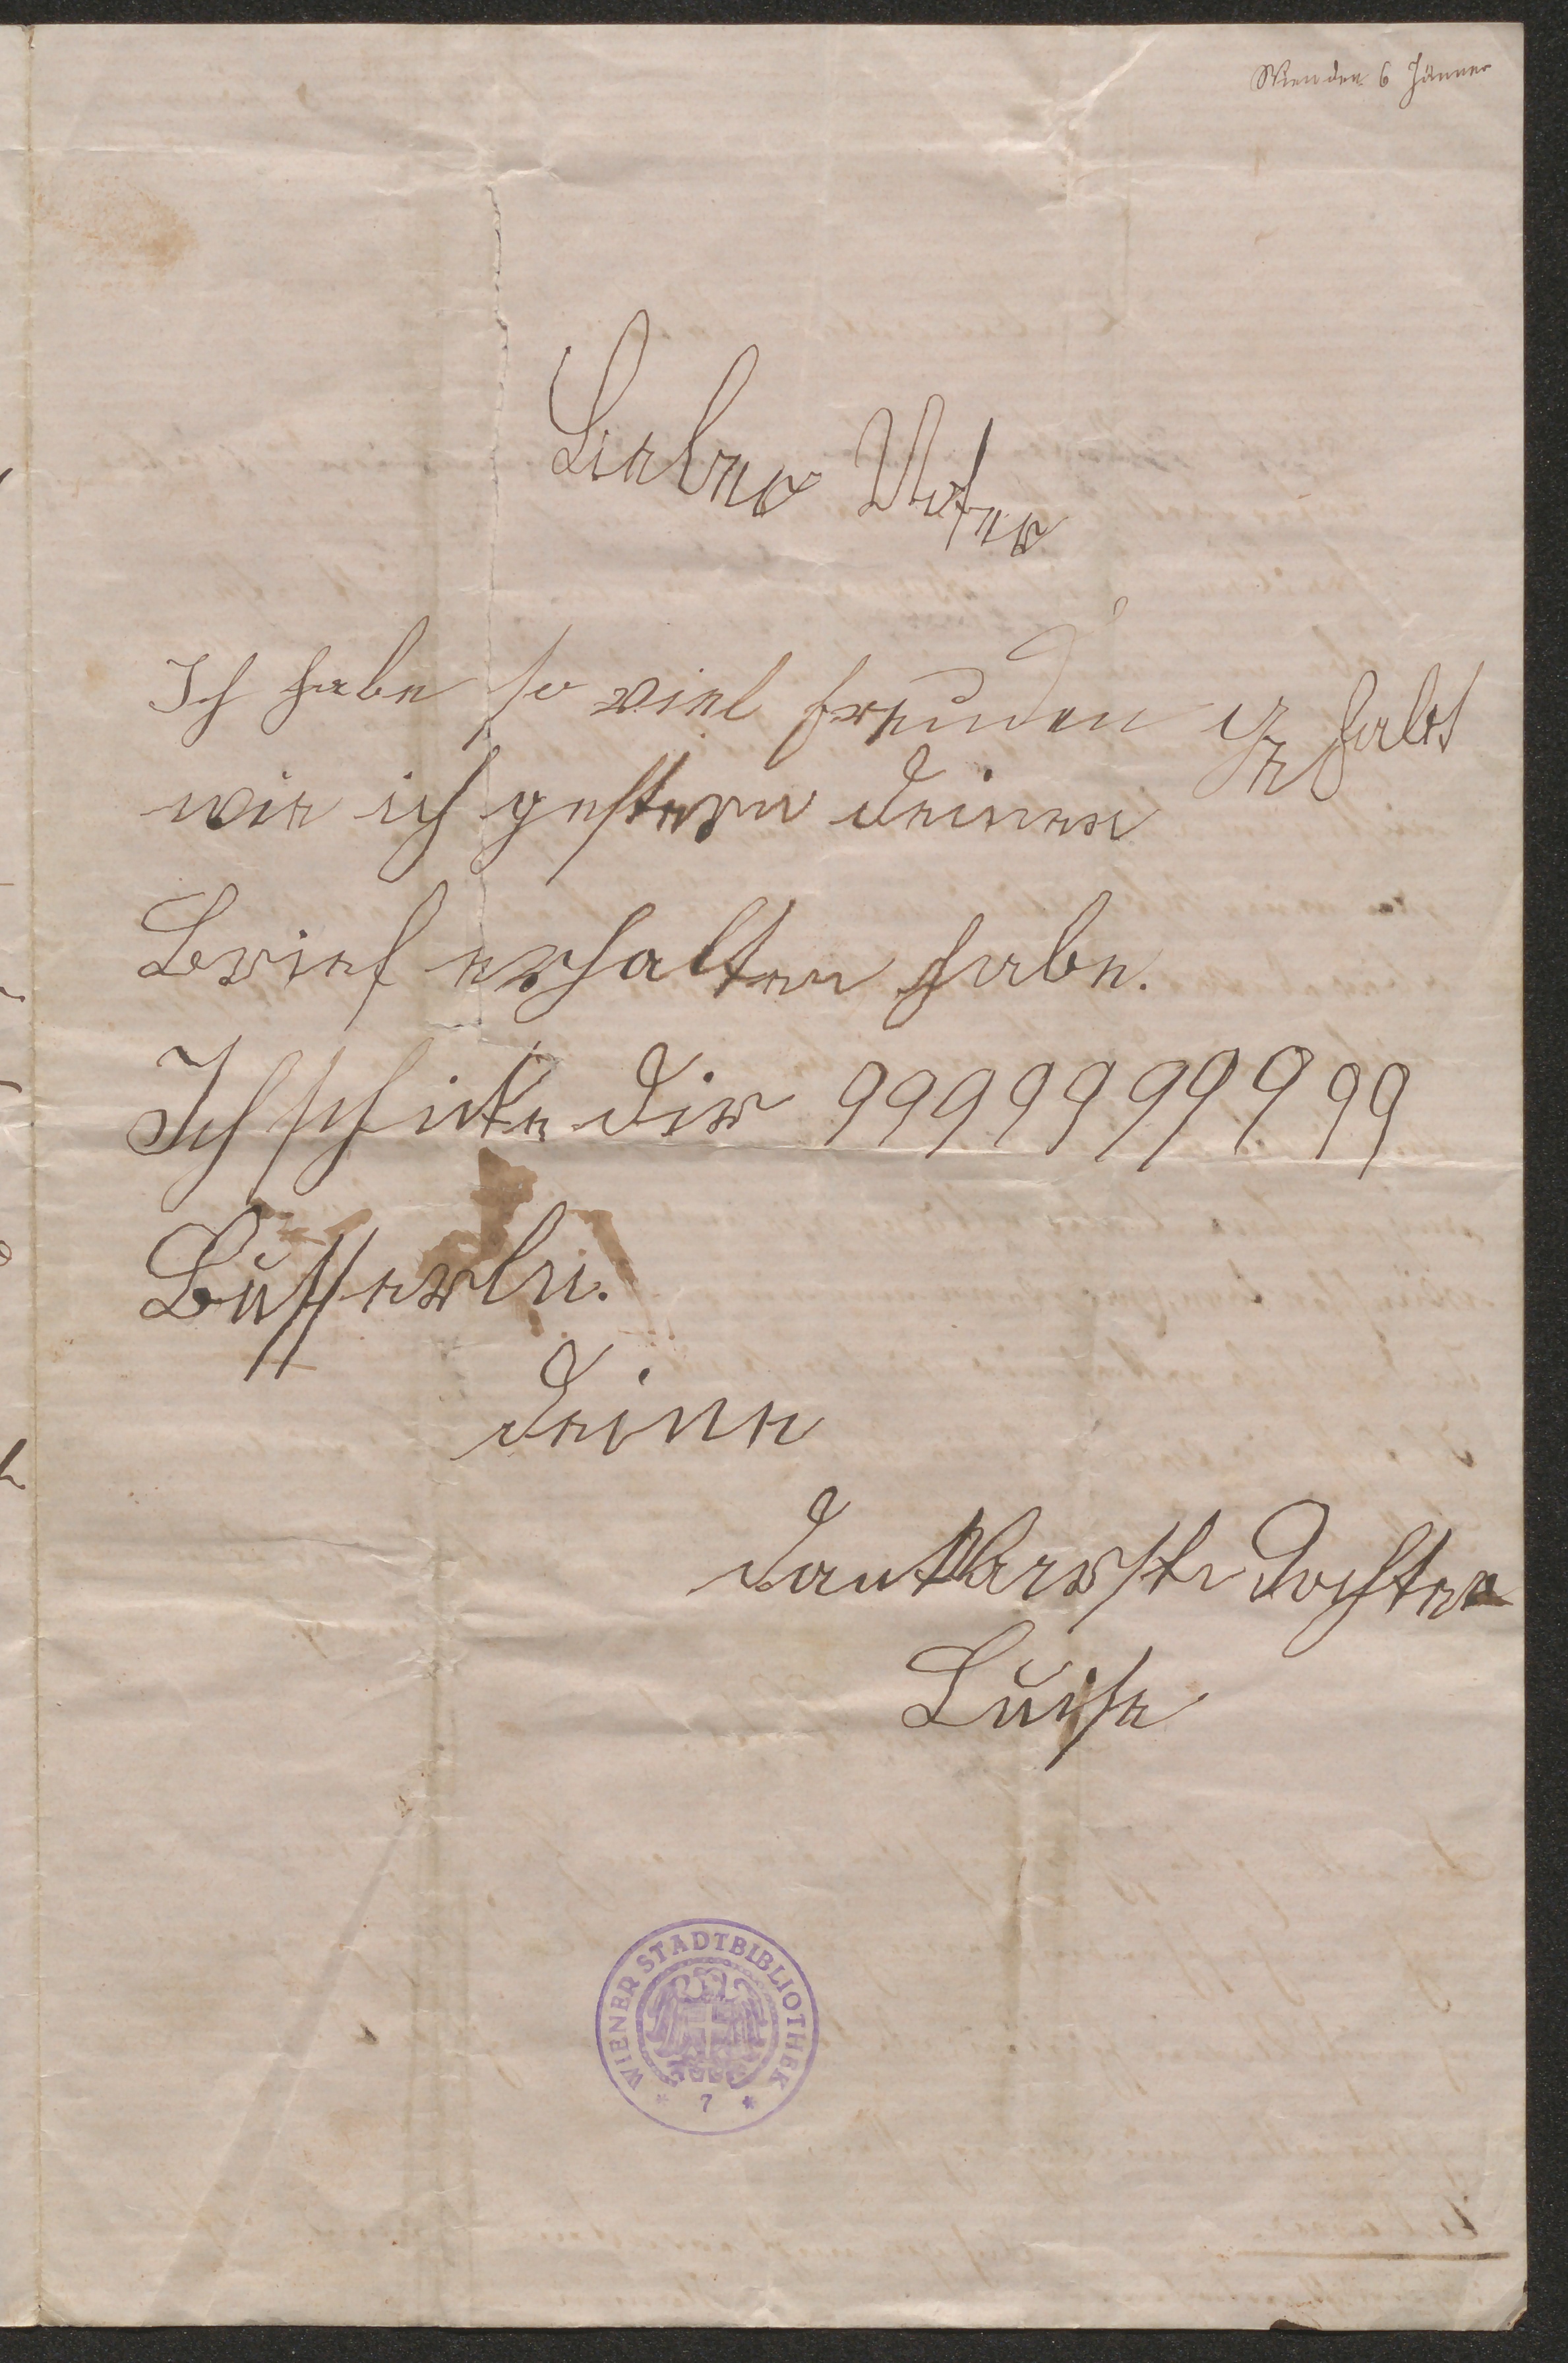 Wien den 6 Jänner
Lieber Vater
Ich habe so viel freuden gehabt
wie ich gestern deinen
Brief erhalten habe.
Ich schicke dir 9999999999
Busserln.
deine
dankbarste Tochter
Luise
WIENER STADTBIBLIOTHEK
* 7 *